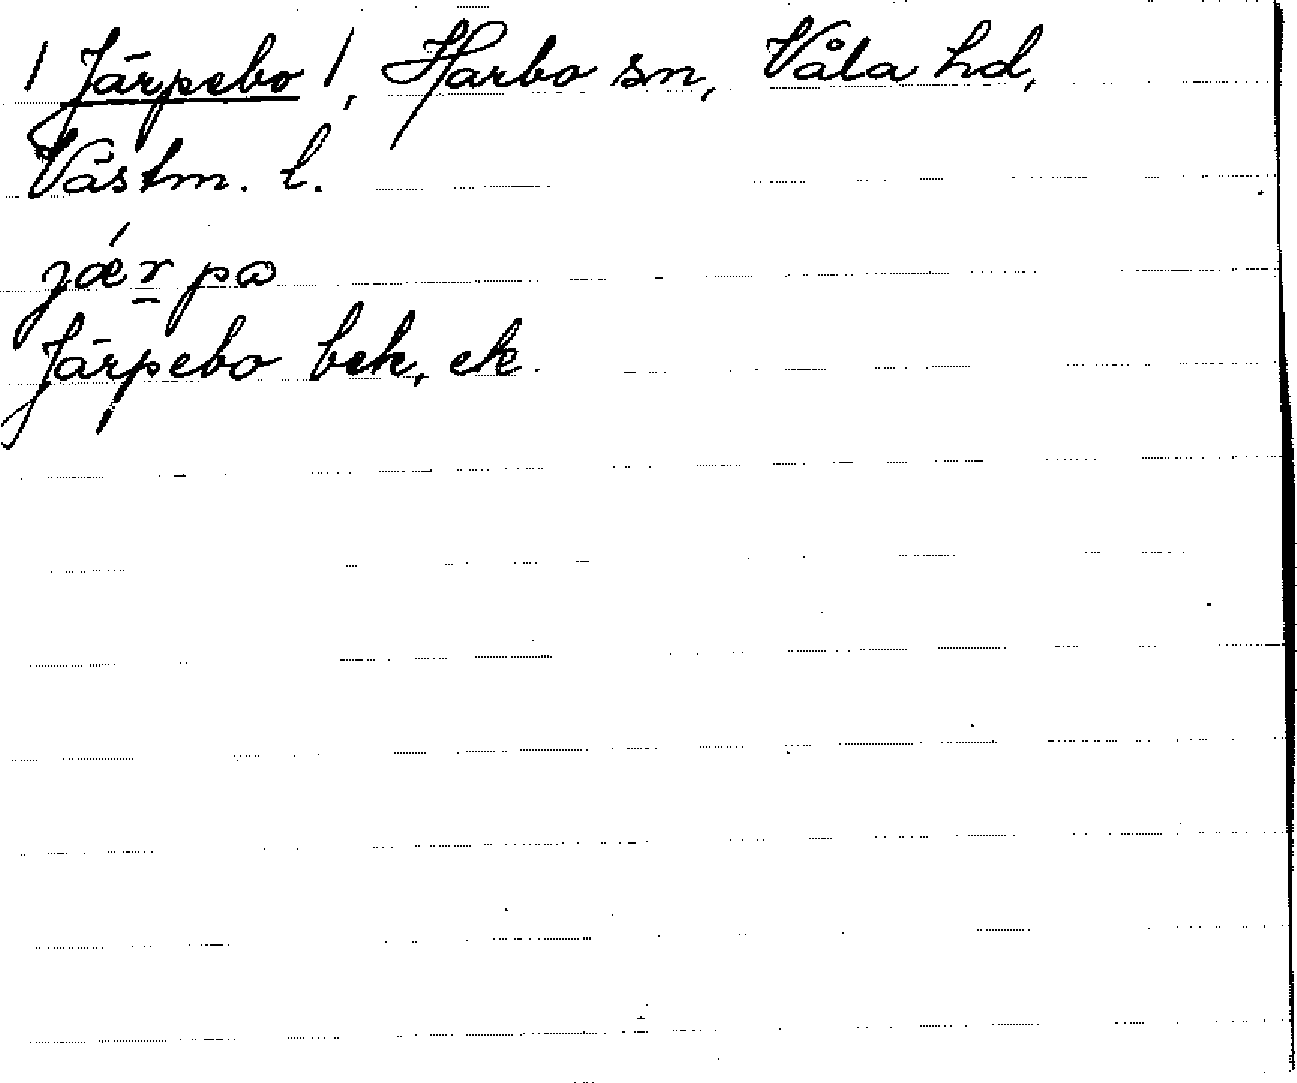 / Järpebo /, Harbo sn, Våla hd,
Västm. l.
jǽr̲pa
Järpebo bek, ek.